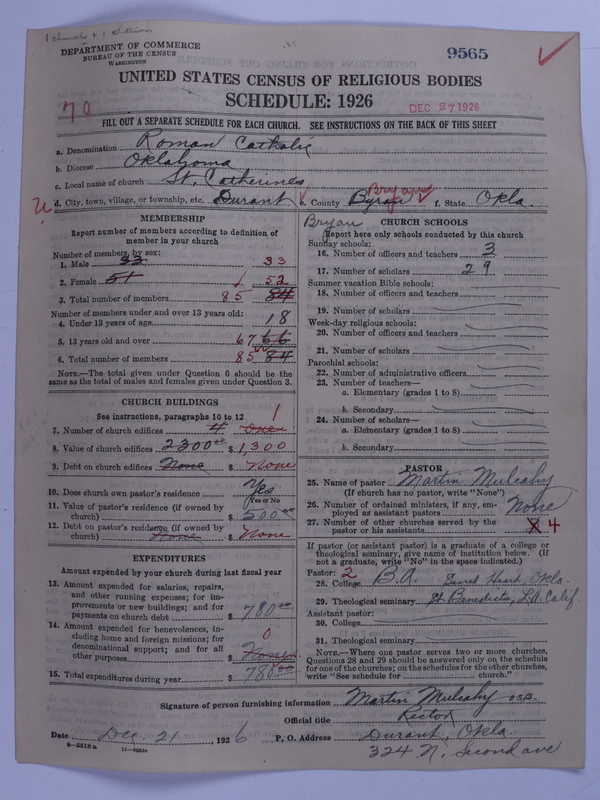 1 church + 1
DEPARTMENT OF COMMERCE
BUREAU OF THE CENSUS
WASHINGTON
9565
UNITED STATES CENSUS OF RELIGIOUS BODIES
SCHEDULE: 1926
70
DEC 27 1926
FILL OUT A SEPARATE SCHEDULE FOR EACH CHURCH. SEE INSTRUCTIONS ON THE BACK OF THIS SHEET
a. Denomination Roman Catholic
b. Diocese Oklahoma
c. Local name of church St. Catherines
d. City, town, village, or township, etc. Durant e. County Byran Bryan f. State Okla.
MEMBERSHIP
Report number of members according to definition of
member in your church
Number of members by sex:
1. Male 33 33
2. Female 51 52
3. Total number of members 85 84
Number of members under and over 13 years old:
4. Under 13 years of age 18
5. 13 years old and over 67 66
6. Total number of members 85 84
NOTE.—The total given under Question 6 should be the
same as the total of males and females given under Question 3.
CHURCH BUILDINGS
See instructions, paragraphs 10 to 12
7. Number of church edifices 4 One 1
8. Value of church edifices 2300.00 $ 1,300
9. Debt on church edifices None $ None
10. Does church own pastor's residence Yes
(Yes or No)
11. Value of pastor's residence (if owned by
church) $ 500.00
12. Debt on pastor's residence (if owned by
church) None $ None
EXPENDITURES
Amount expended by your church during last fiscal year
13. Amount expended for salaries, repairs,
and other running expenses; for im-
provements or new buildings; and for
payments on church debt $ 780.00
14. Amount expended for benevolences, in-
cluding home and foreign missions; for
denominational support; and for all
other purposes $ None 0
15. Total expenditures during year $ 780.00
Bryan
CHURCH SCHOOLS
Report here only schools conducted by this church
Sunday schools:
16. Number of officers and teachers 3
17. Number of scholars 29
Summer vacation Bible schools:
18. Number of officers and teachers
19. Number of scholars
Week-day religious schools:
20. Number of officers and teachers
21. Number of scholars
Parochial schools:
22. Number of administrative officers
23. Number of teachers—
a. Elementary (grades 1 to 8)
b. Secondary
24. Number of scholars—
a. Elementary (grades 1 to 8)
b. Secondary
PASTOR
25. Name of pastor Martin Mulcahy
(If church has no pastor, write "None")
26. Number of ordained ministers, if any, em-
ployed as assistant pastors None
27. Number of other churches served by the
pastor or his assistants 4
If pastor (or assistant pastor) is a graduate of a college or
theological seminary, give name of institution below. (If
not a graduate, write "No" in the space indicated.)
Pastor: 2
28. College B.A. Sacred Heart, Okla.
29. Theological seminary St Benedicts, LA. Calif
Assistant pastor:
30. College
31. Theological seminary
NOTE.—Where one pastor serves two or more churches,
Questions 28 and 29 should be answered only on the schedule
for one of the churches; on the schedules for the other churches,
write "See schedule for church."
Signature of person furnishing information Martin Mulcahy OSB.
Official title Rector
Date Dec. 21, 1926 P. O. Address Durant, Okla.
8—5518a
324 N. Second ave